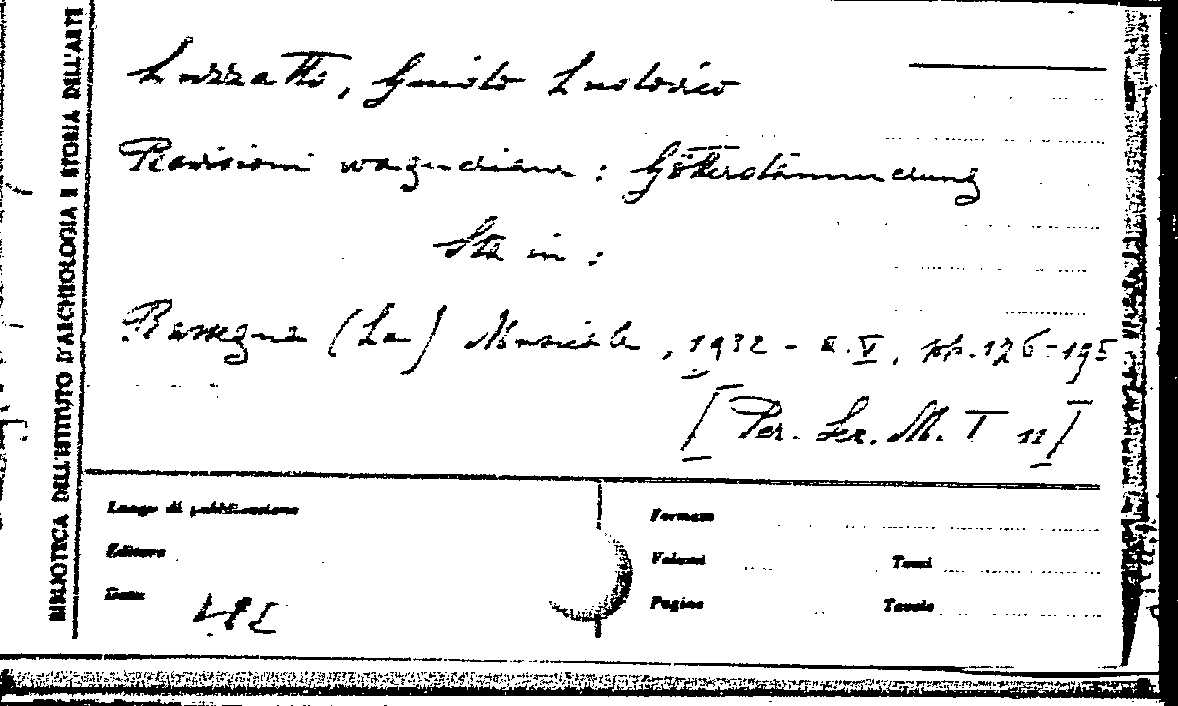 BIBLIOTECA DELL'ISTITUTO D'ARCHEOLOGIA E STORIA DELL'ARTE
Luzzatto, Guido Ludovico
Revisioni wagneriane : Götterdämmerung
Sta in :
Rassegna (La) Musicale, 1932 - a. V, pp. 176-195
[Per. Ser. M. I 11]
Luogo di pubblicazione
Editore
Data
Formato
Volumi
Tomi
Pagine
Tavole